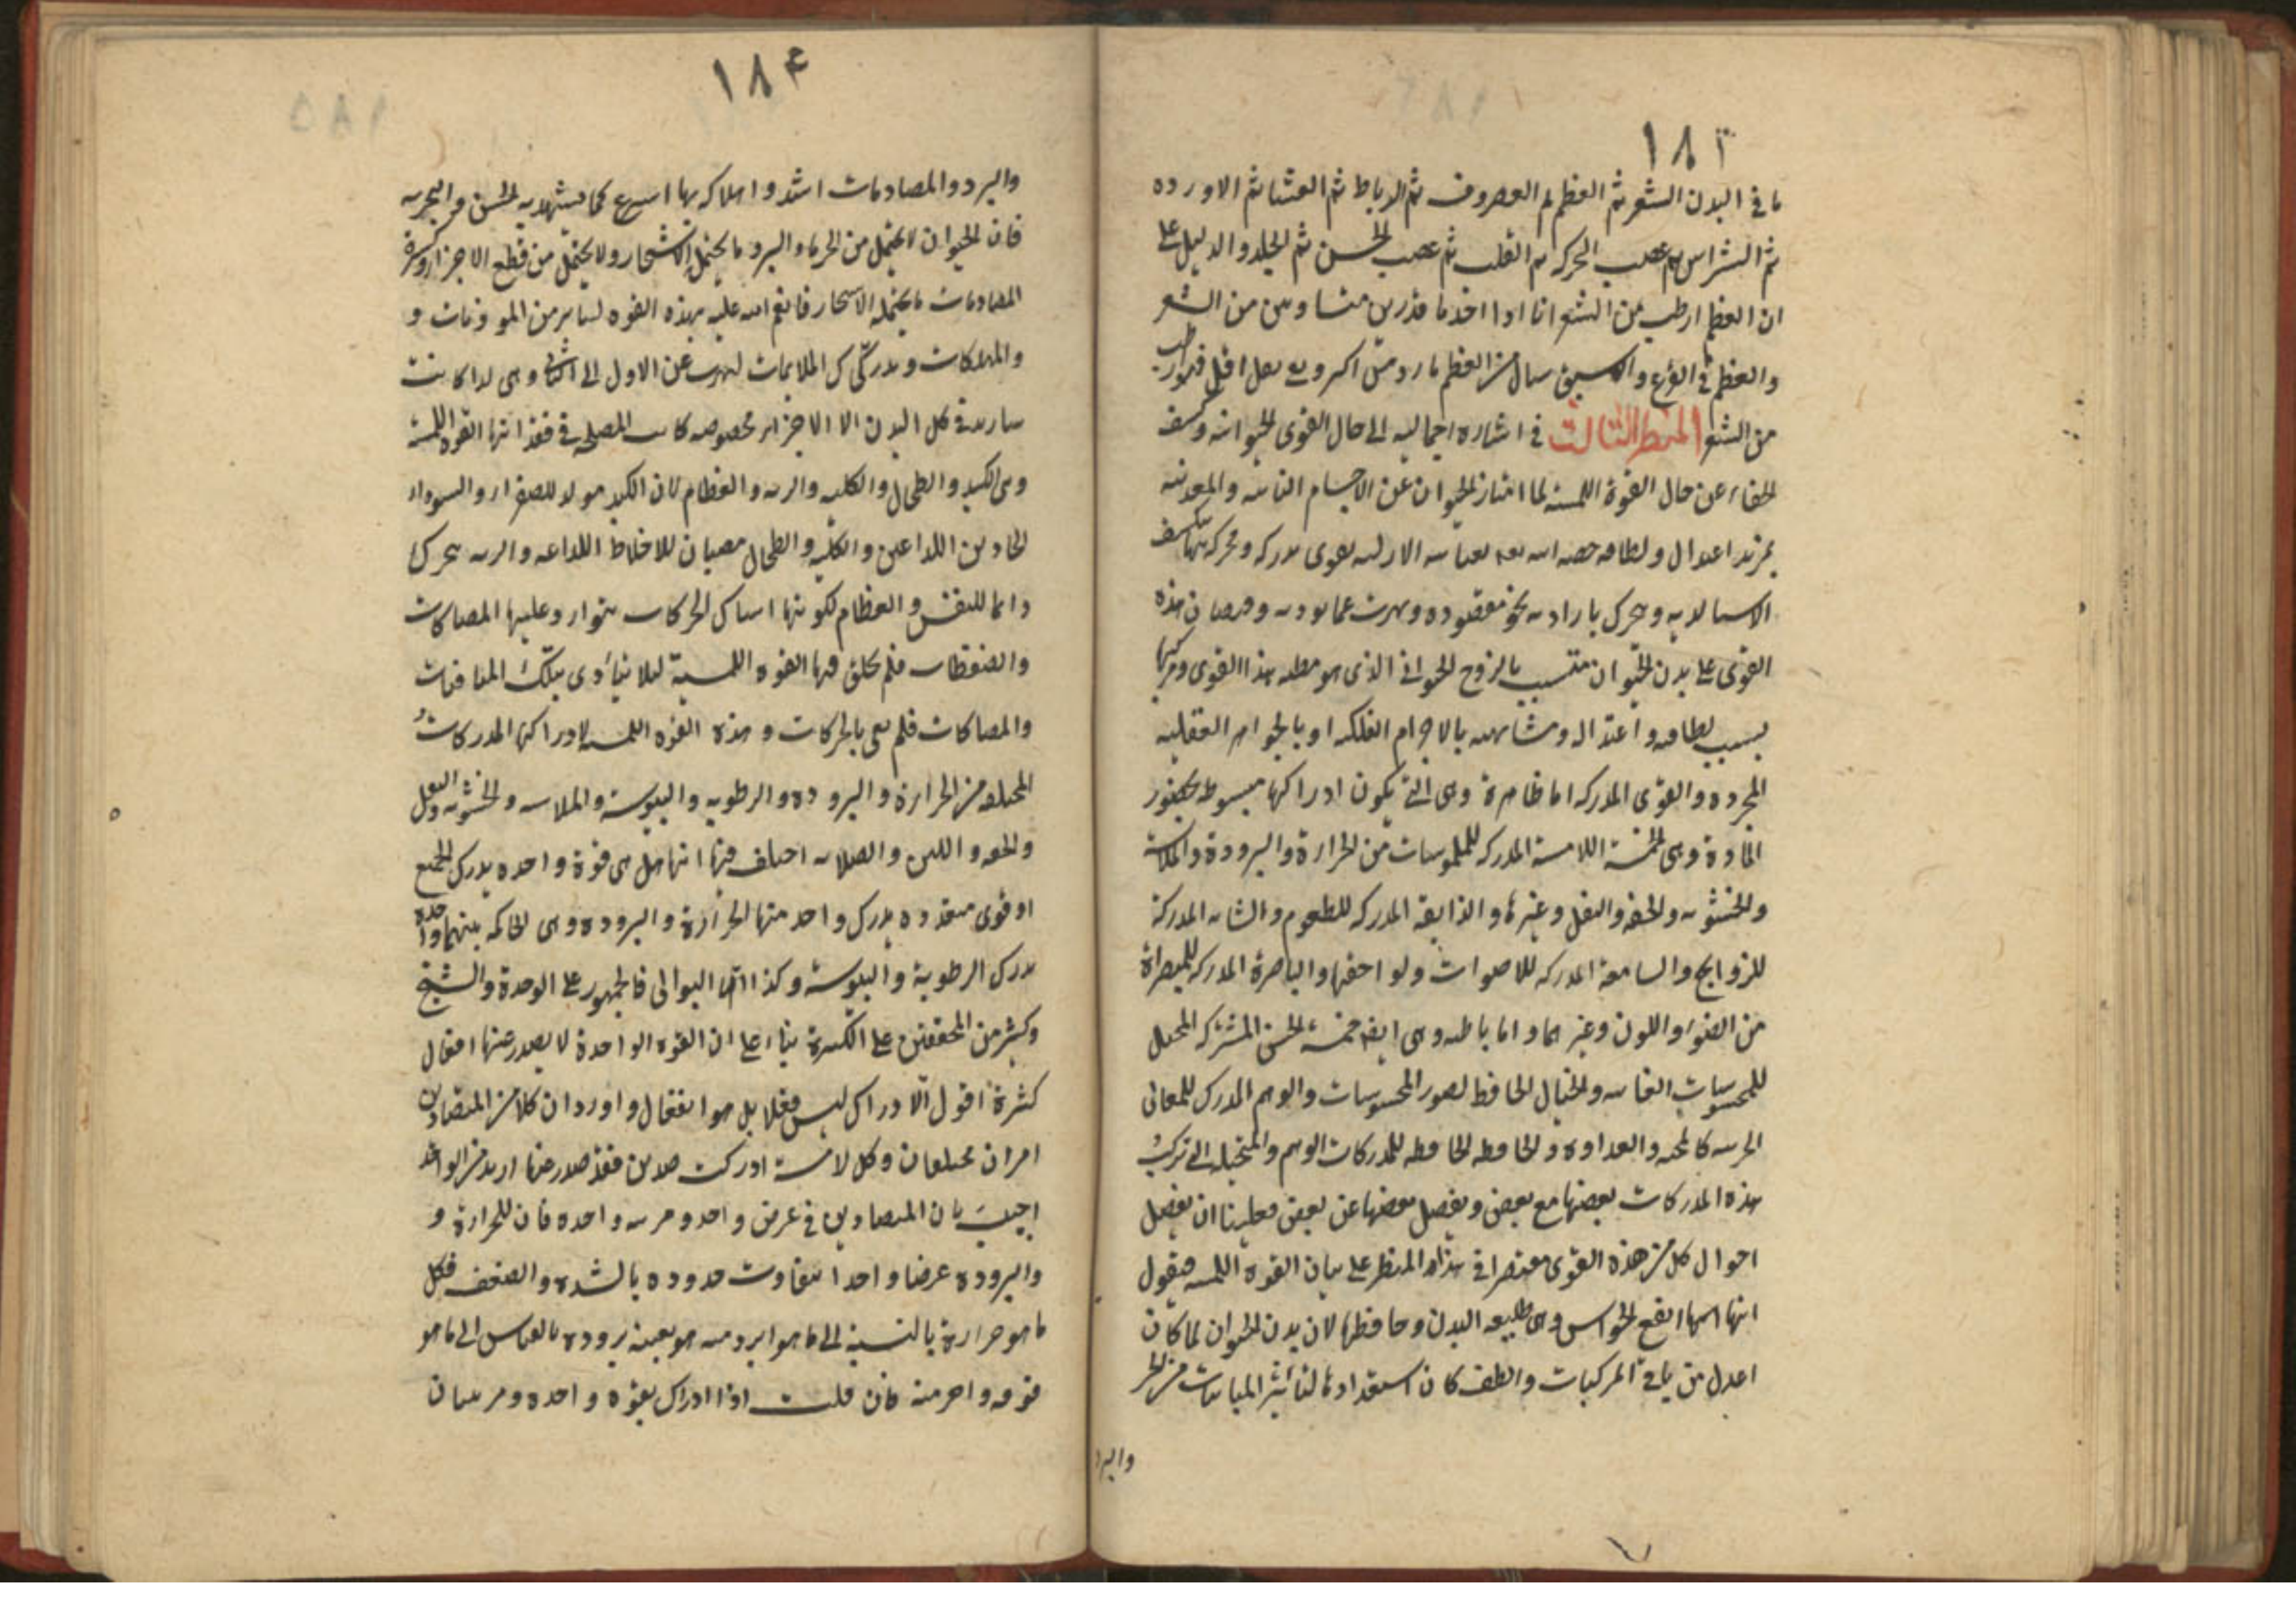 ١٨٣
ما في البدن الشعر ثم العظم ثم الغضروف ثم الرباط ثم الغشا ثم الاورده
ثم الشرائين ثم عصب الحركه ثم القلب ثم عصب الحس ثم الجلد والدليل على
ان العظم ارطب من الشعر انا اذا اخذنا قدرين متساويين من الشعر
والعظم في القرع والانبيق سال من العظم ماء ودهن اكثر وبقي ثفل اقل فهو ارطب
من الشعر المنظر الثالث في اشاره اجماليه الى حال القوى الحيوانيه وكشف
الخفاء عن حال القوة اللمسيه لما امتاز الحيوان عن الاجسام النباتيه والمعدنيه
بمزيد اعتدال ولطافه خصه الله بعنايته الازليه بقوى مدركه ومحركه
القوى على بدن الحيوان بسبب الروح الحيواني الذي هو مطيه هذا القوى ومركبها
بسبب لطافته واعتداله ومشابهته بالاجرام الفلكيه او بالجواهر العقليه
المجرده والقوى المدركه اما ظاهرة وهي التي يكون ادراكها مسبوطه بحضور
المادة وهي الخمسة اللامسة المدركه للملموسات من الحرارة والبرودة والملاسة
والخشونه والخفه والثقل وغيرها والذايقه المدركه للطعوم والشامه المدركة
للروايح والسامعة المدركه للاصوات ولواحقها والباصرة المدركه للمبصراة
من الضوء واللون وغيرهما واما باطنه وهي ايضا خمسة الحس المشترك المحيل
للمحسوسات الغايبه والخيال الحافظ لصور المحسوسات والوهم المدرك للمعاني
الجزئيه كالمحبه والعداوة والحافظه الحافظه للمدركات الوهم والمتخيله التي تركب
هذه المدركات بعضها مع بعض ويفصل بعضها عن بعض فعلينا ان نفصل
احوال كل من هذه القوى مقتصرا في هذا المنظر على بيان القوة اللمسيه فنقول
انها اهمها انفع الحواس وهي طليعه البدن وحافظها لان بدن الحيوان لما كان
اعدل من باقي المركبات والطف كان استعداده لتأثير المباينات من الحر
والبرد
١٨٤
والبرد والمصادمات اشد واهلاكه بها اسرع كما يشهد به الحس والتجربه
فان الحيوان لا يحتمل من الحر والبرد ما يحتمل الاشجار ولا يحتمل من قطع الاجزاء وكثرة
المصادمات ما يحتمله الاشجار فانعم الله عليه بهذه القوه ليهرب من الموذيات و
والمهلكات ويدرك الملايمات ليهرب عن الاول الى الثاني وهي لذا كانت
ساريه في كل البدن الا الاجزاء مخصوصه كانت المصلحه في فقدانها القوه اللمسيه
وهي الكبد والطحال والكليه والريه والعظام لان الكبد مولد للصفراء والسوداء
الحادين اللذاعين والكليه والطحال مصبان للاخلاط اللذاعه والريه يتحرك
دائما للتنفس والعظام لكونها اساس الحركات يتوارد عليها المصاكات
والضغطات فلم يخلق فيها القوه اللمسية ليلا يتأذى بتلك المنافيات
والمصاكات فلم يفي بالحركات وهذه القوه اللمسيه لادراكها المدركات
المختلفه من الحرارة والبروده والرطوبه واليبوسة والملاسه والخشونه والثقل
والخفه واللين والصلابه اختلف فيها انها هل هي قوة واحده يدرك الجميع
او قوى متعدده يدرك واحد منها الحرارة والبروده وهي الحاكمه بينهما واحده
يدرك الرطوبة واليبوسة وكذا البواقي فالجمهور على الوحدة والشيخ
وكثير من المحققين على الكثرة بناء على ان القوه الواحدة لا يصدر عنها افعال
كثرة اقول الادراك ليس فعلا بل هو انفعال واورد ان كلا من المتضادين
امران مختلفان وكل لامسة ادركت ضدين فقد صدر عنها ازيد من الواحد
اجيب بان المتضادين في عرض واحد ومرتبه واحده فان للحرارة و
والبروده عرضا واحدا يتفاوت حدوده بالشده والضعف فكل
ما هو حرارة بالنسبة الى ما هو ابرد منه هو بعينه بروده بالقياس الى ما هو
فوقه واحر منه فان قلت اذا ادراك بقوه واحده ومرتبتان